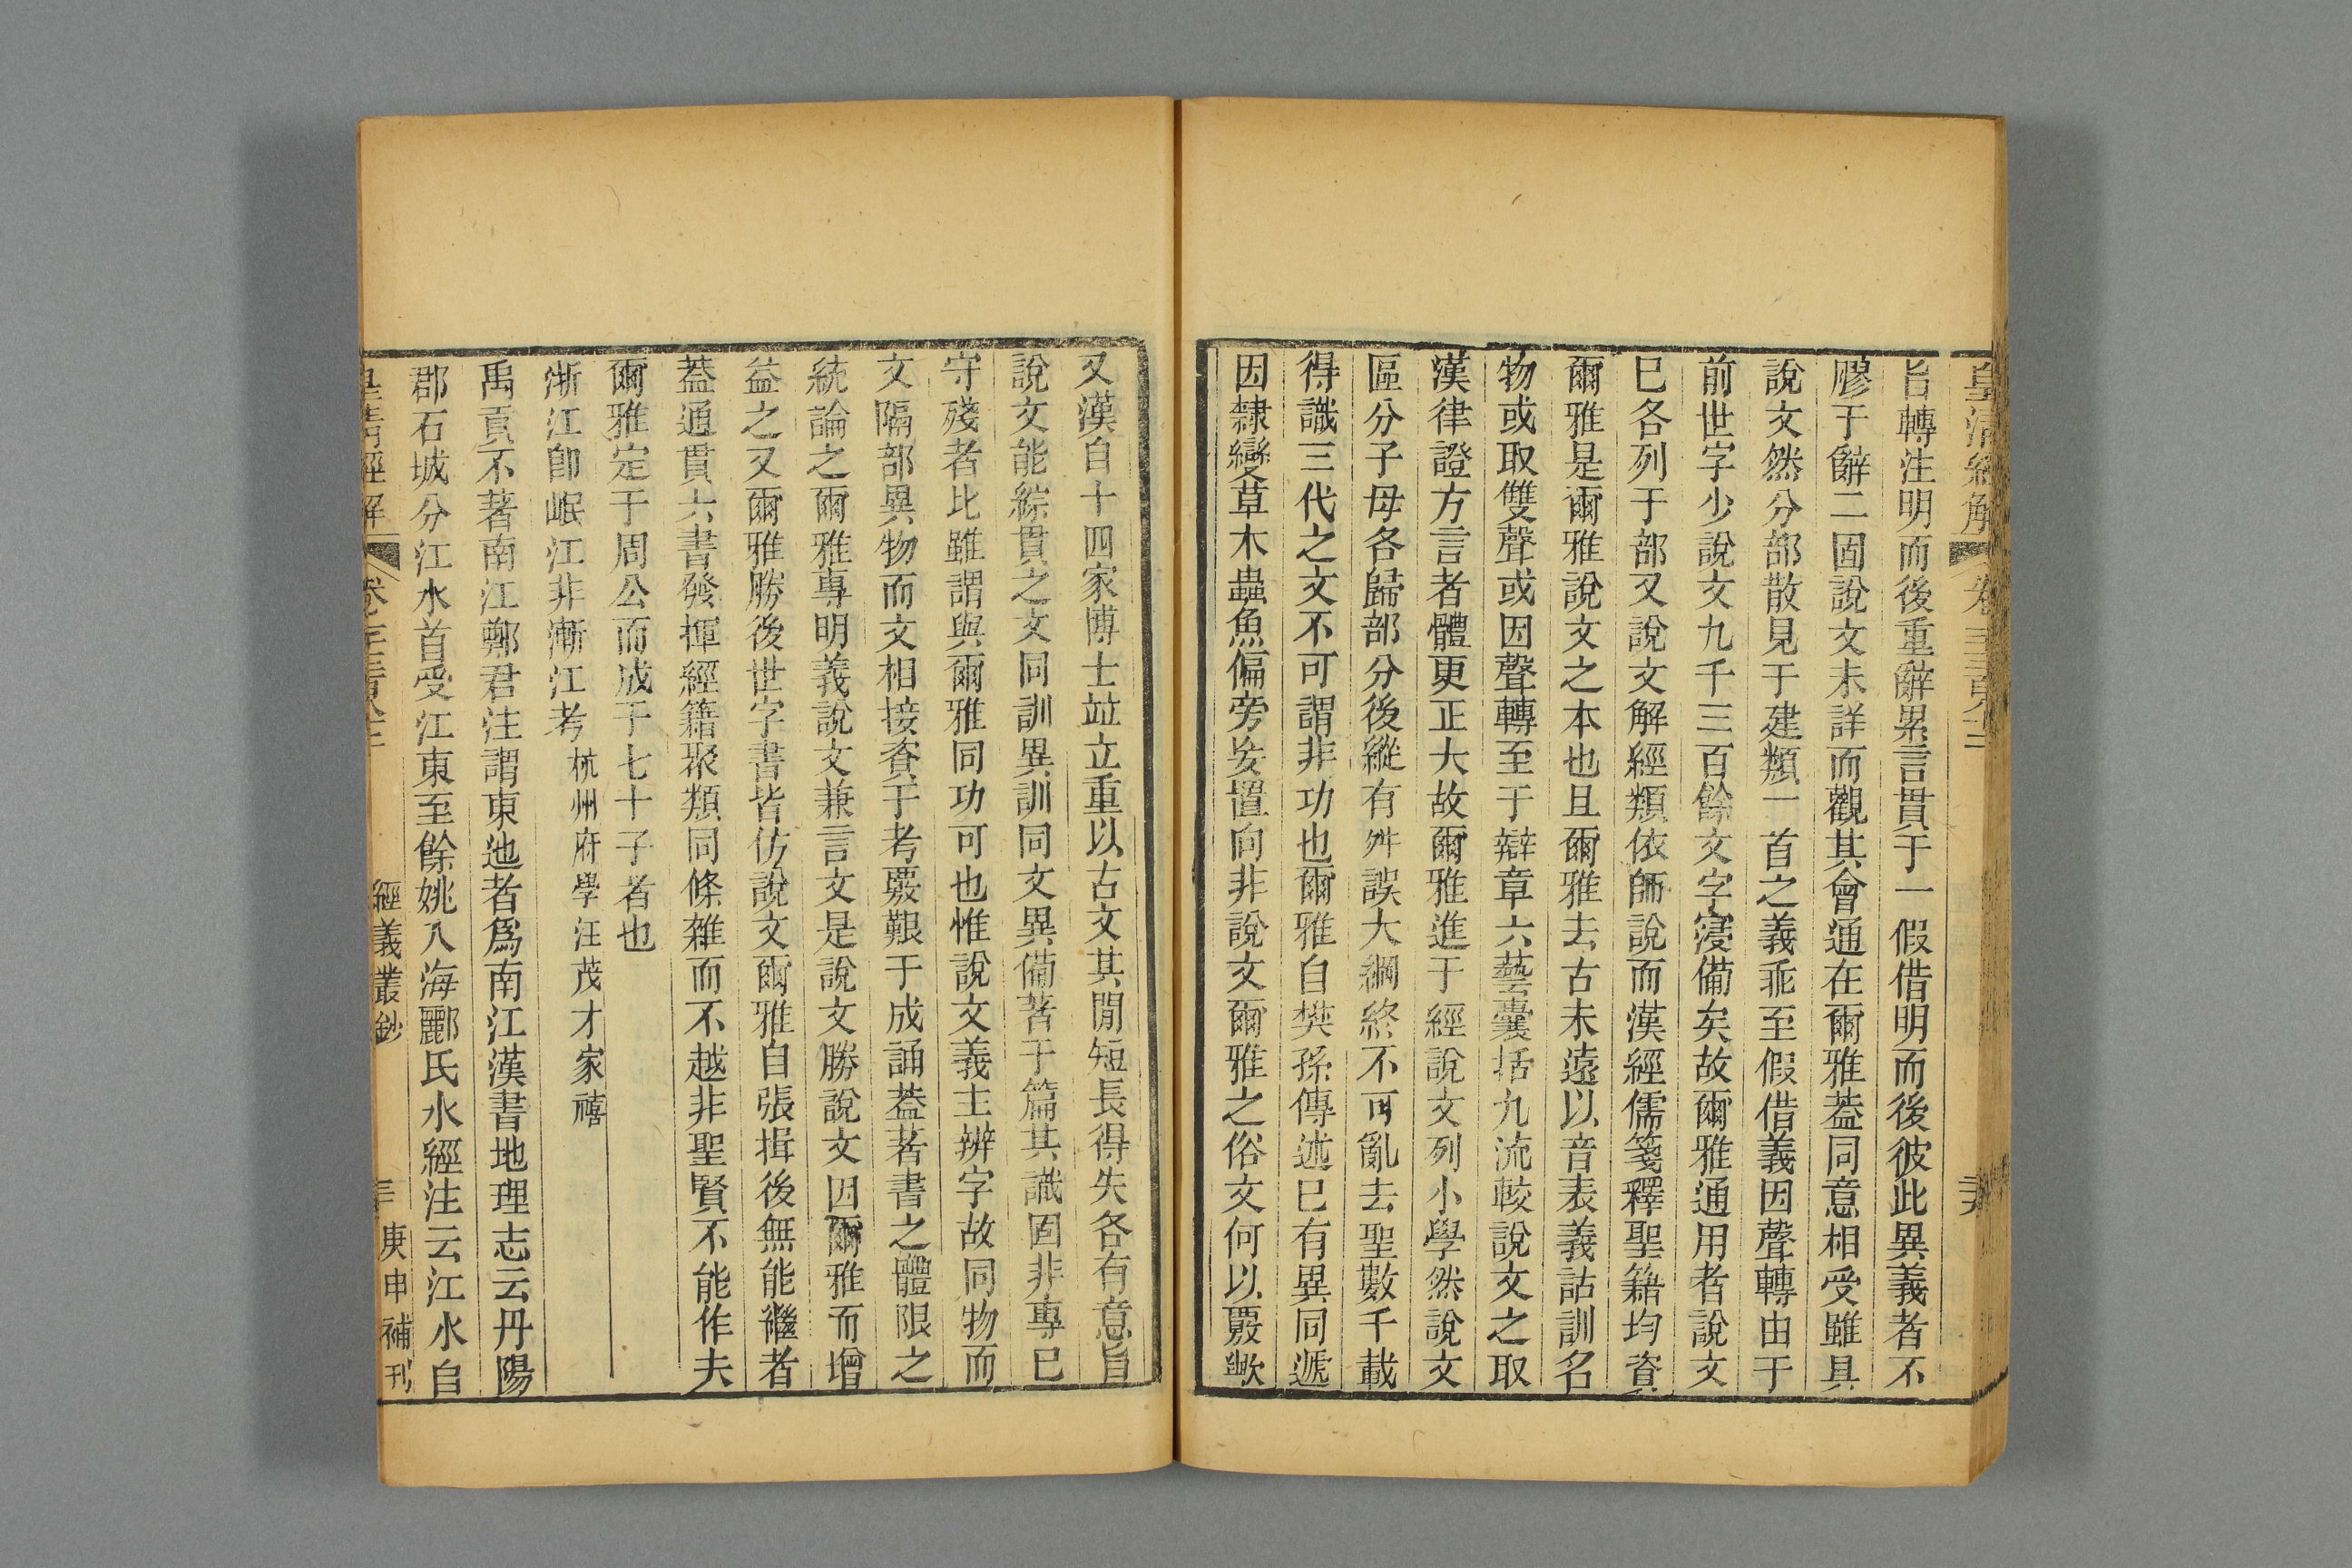 皇清經解
旨轉注明而後重辭累言貫于一假借明而後彼此異義者不
膠于辭二固說文未詳而觀其會通在爾雅葢同意相受雖具
說文然分部散見于建類一首之義乖至假借義因聲轉由于
前世字少說文九千三百餘文字寖備矣故爾雅通用者說文
已各列于部又說文解經類依師說而漢經儒箋釋聖籍均資
爾雅是爾雅說文之本也且爾雅去古未遠以音表義詁訓名
物或取雙聲或因聲轉至于辯章六藝囊括九流較說文之取
漢律證方言者體更正大故爾雅進于經說文列小學然說文
區分子母各歸部分後縱有舛誤大綱終不可亂去聖數千載
得識三代之文不可謂非功也爾雅自樊孫傳述已有異同遞
因隸變草木蟲魚偏旁妄置向非說文爾雅之俗文何以覈歟
又漢自十四家博士竝立重以古文其閒短長得失各有意旨
說文能綜貫之文同訓異訓同文異備著于篇其識固非專已
守殘者比雖謂與爾雅同功可也惟說文義主辨字故同物而
文隔部異物而文相接資于考覈艱于成誦葢著書之體限之
統論之爾雅專明義說文兼言文是說文勝說文因爾雅而增
益之又爾雅勝後世字書皆仿說文爾雅自張揖後無能繼者
葢通貫六書發揮經籍聚類同條雜而不越非聖賢不能作夫
爾雅定于周公而成于七十子者也
浙江卽岷江非漸江考 杭州府學汪茂才家禧
禹貢不著南江鄭君注謂東迆者爲南江漢書地理志云丹陽
郡石城分江水首受江東至餘姚入海酈氏水經注云江水自
皇清經解 經義叢鈔 庚申補刊